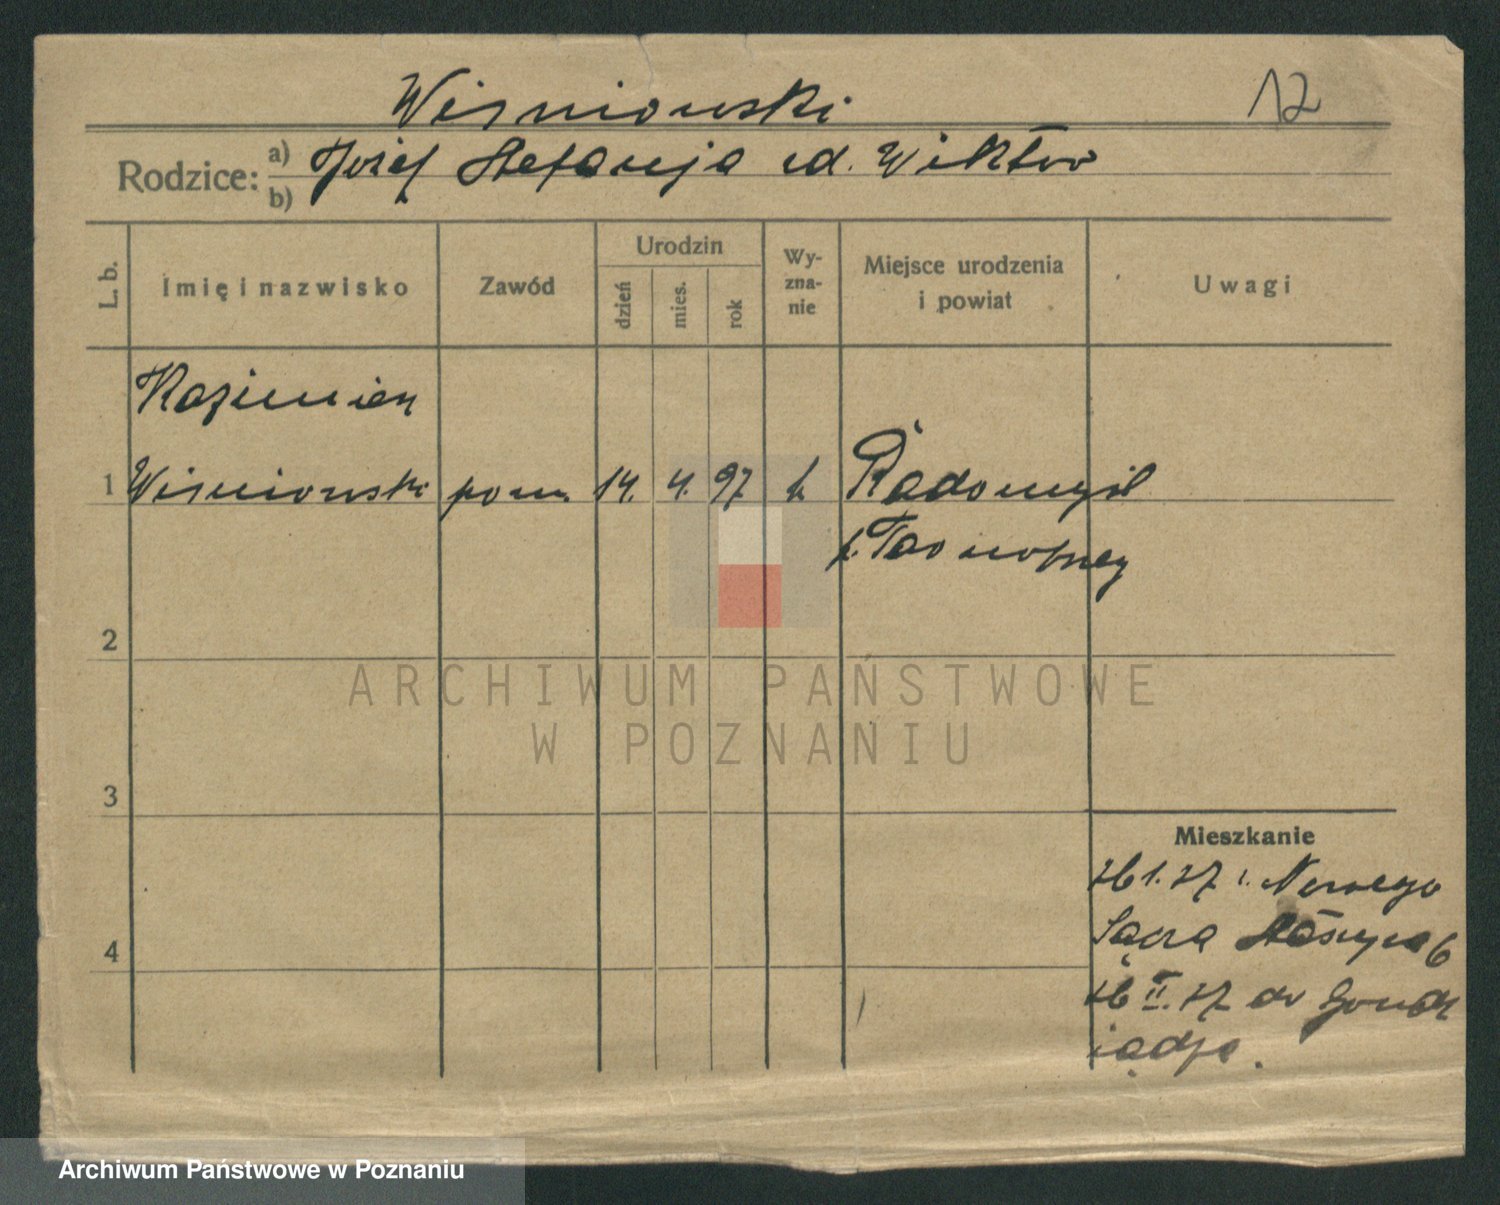 Wiśniowski 12
Rodzice: a) Józef Stefanja zd. Wiktor
b)
L. b. Imię i nazwisko Zawód Urodzin dzień mies. rok Wyznanie Miejsce urodzenia i powiat Uwagi
Kazimierz
1 Wiśniowski pom. 14. 4. 97 k Radomyśl
p. Tarnobrzeg
2
ARCHIWUM PAŃSTWOWE
W POZNANIU
3
Mieszkanie
26 1. 27 z Nowego
Sącza 6
4
26 II. 27 do Grudz
iądza.
Archiwum Państwowe w Poznaniu